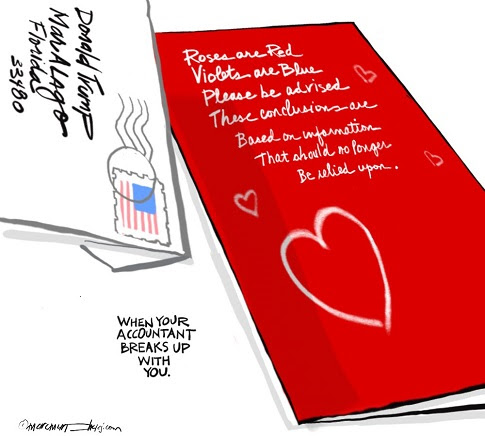 Donald Trump
Mar A Lago
Florida
33480
Roses are Red
Violets are Blue
Please be advised
These conclusions are
Based on information
That should no longer
Be relied upon.
WHEN YOUR
ACCOUNTANT
BREAKS UP
WITH
YOU.